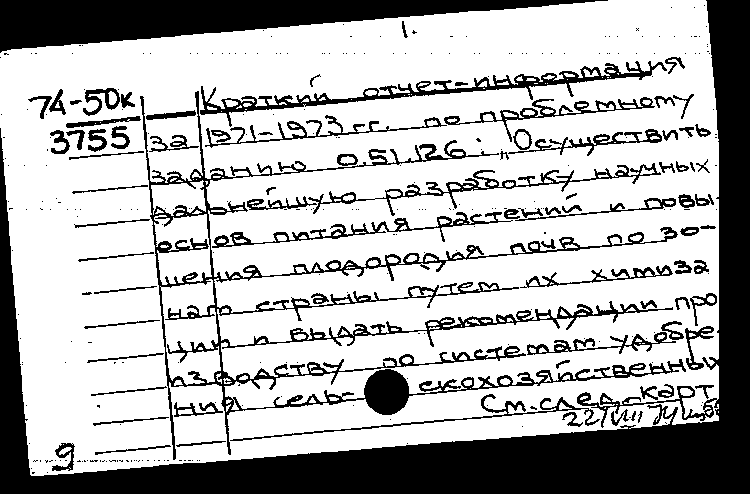 1.
74-50к Краткий отчет-информация
3755 за 1971-1973 гг. по проблемному
заданию 0.51.126: „Осуществить
дальнейшую разработку научных
основ питания растений и повы-
шения плодородия почв по зо-
нам страны путем их химиза
ции и выдать рекомендации про
изводству по системам удобре-
ния сельскохозяйственных
См.след.карт.
22/VIII 74
9